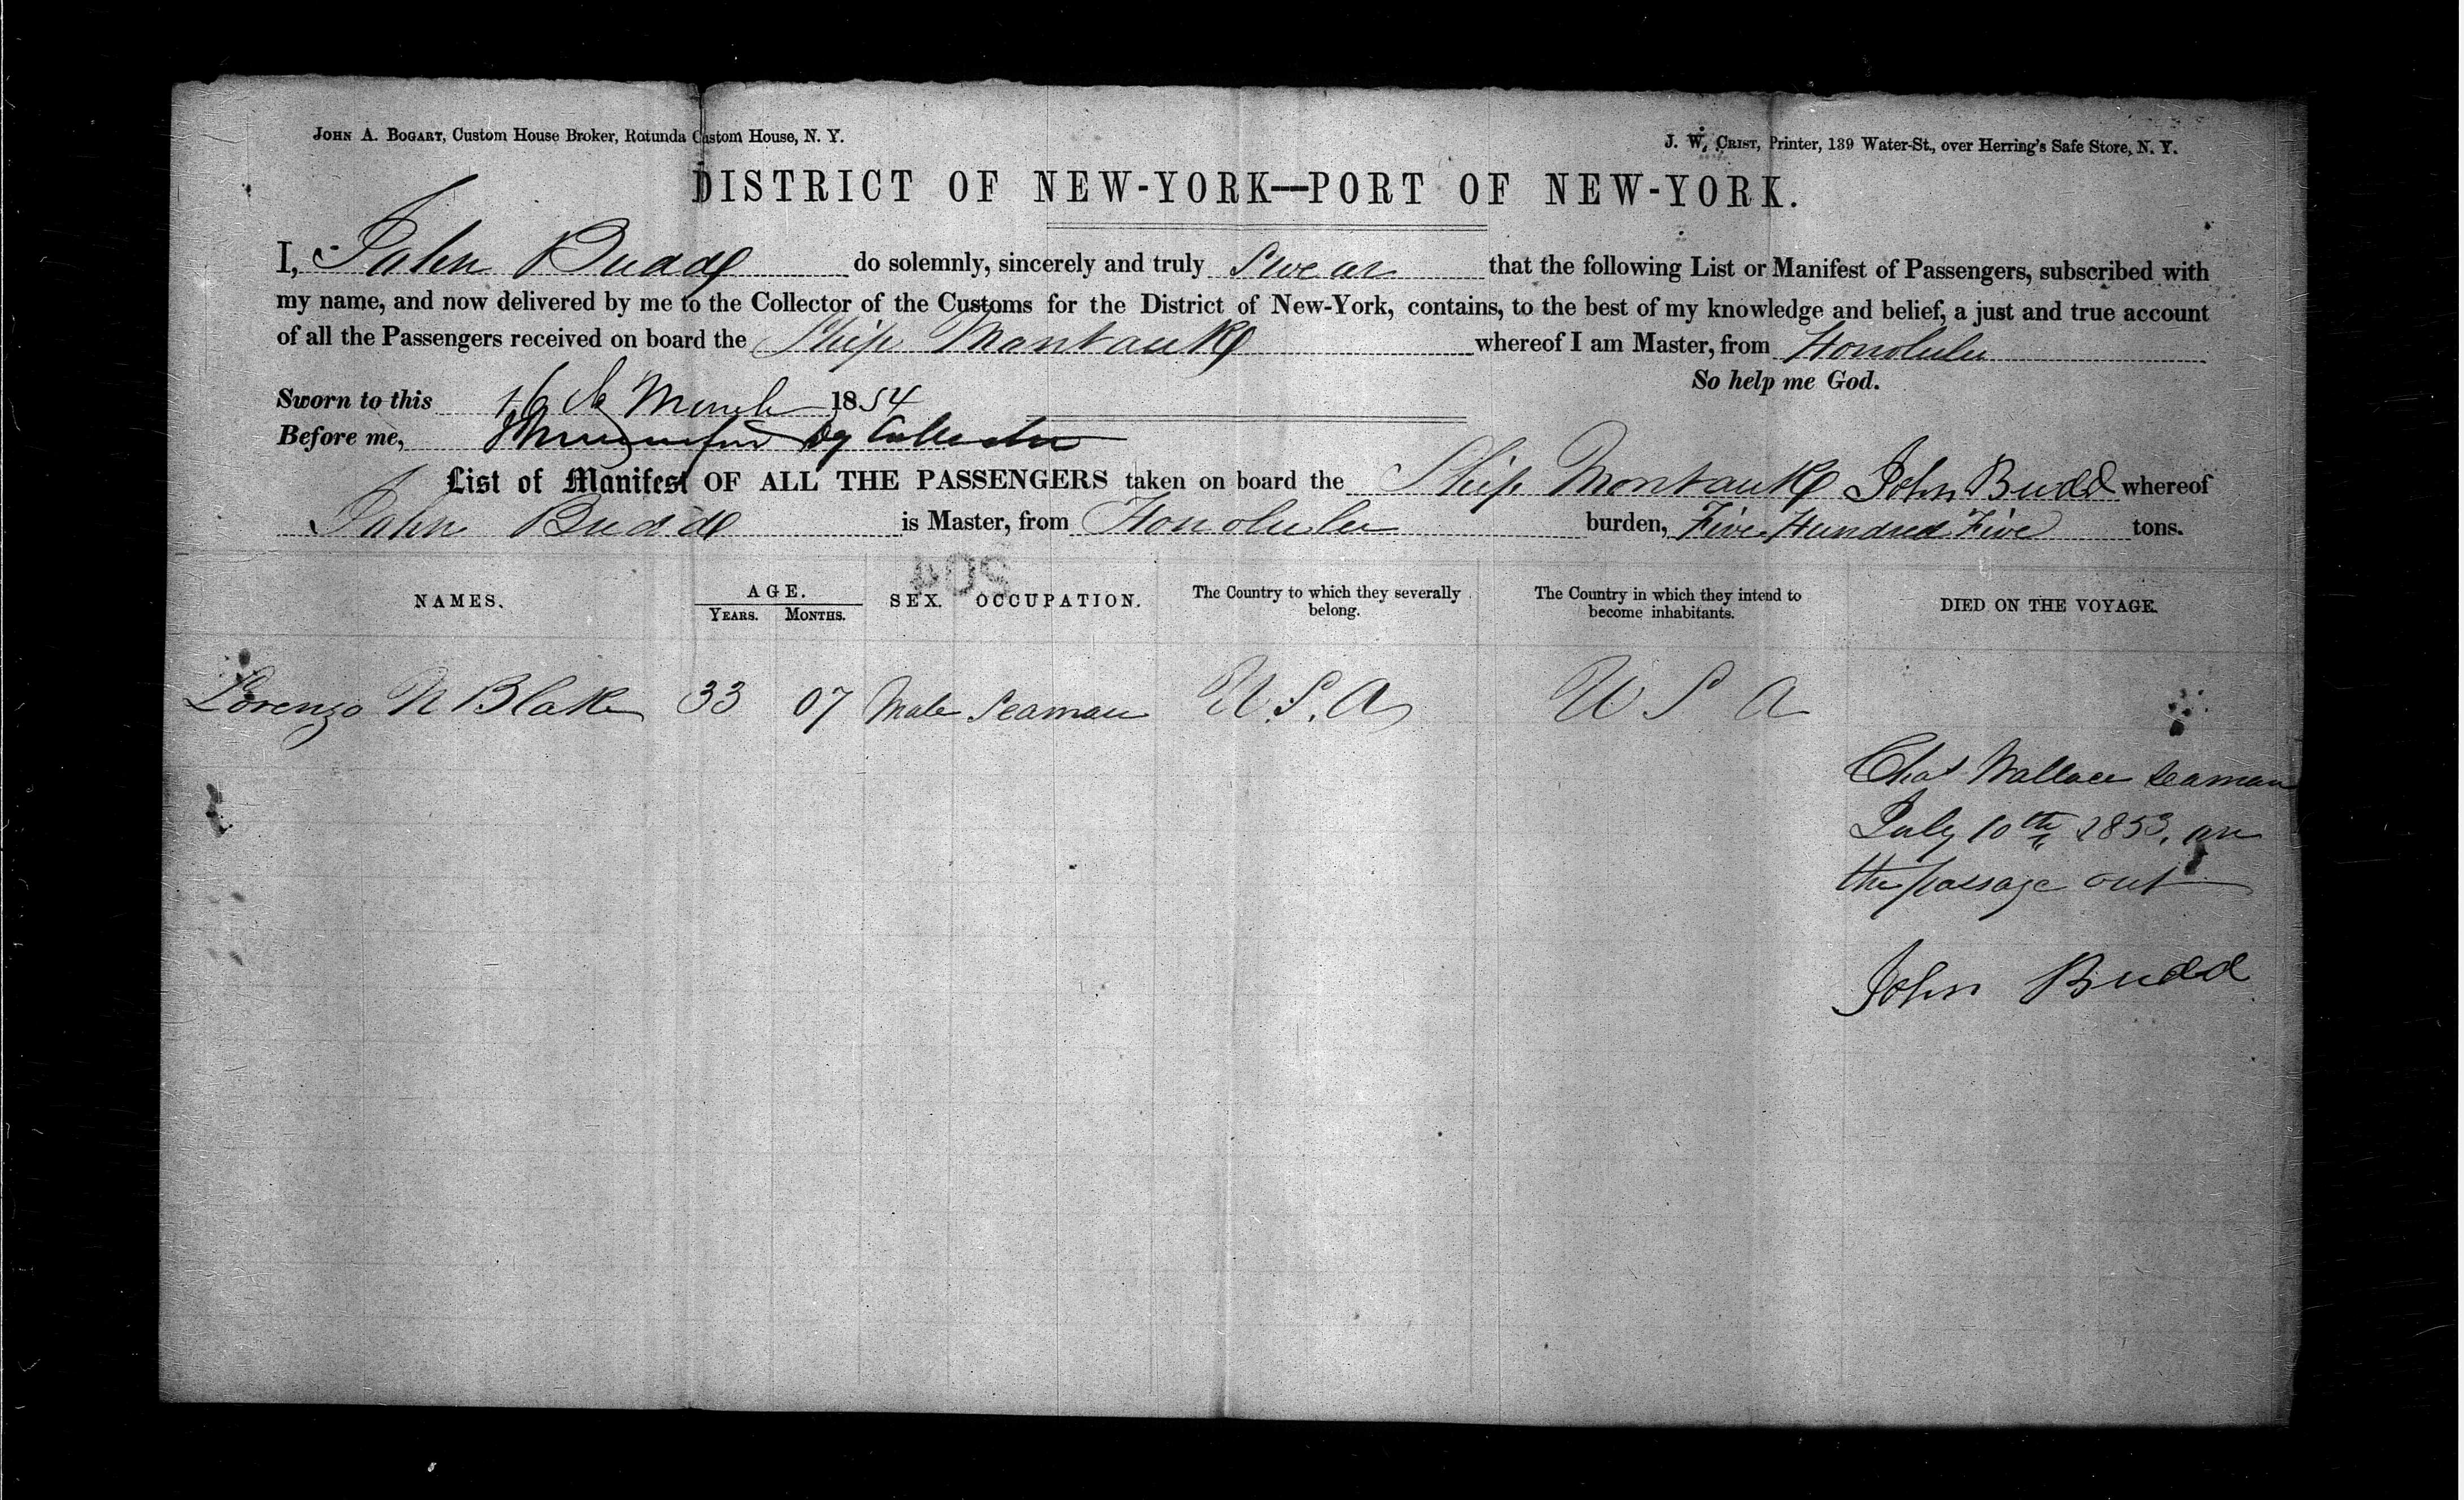 JOHN A. BOGART, Custom House Broker, Rotunda Custom House, N. Y.
J. W. CRIST, Printer, 139 Water-St., over Herring's Safe Store, N. Y.
DISTRICT OF NEW-YORK—PORT OF NEW-YORK.
I, John Budd do solemnly, sincerely and truly Swear that the following List or Manifest of Passengers, subscribed with
my name, and now delivered by me to the Collector of the Customs for the District of New-York, contains, to the best of my knowledge and belief, a just and true account
of all the Passengers received on board the Ship Montauk whereof I am Master, from Honolulu
So help me God.
Sworn to this 16th March 1854
Before me, Dy Collector
List of Manifest OF ALL THE PASSENGERS taken on board the Ship Montauk John Budd whereof
John Budd is Master, from Honolulu burden, Five Hundred Five tons.
504
NAMES. AGE. SEX. OCCUPATION. The Country to which they severally belong. The Country in which they intend to become inhabitants. DIED ON THE VOYAGE.
YEARS. MONTHS.
Lorenzo N Blake 33 07 Male Seaman U.S.A U S A
Chas Wallace Seaman
July 10th 1853, on
the passage out
John Budd